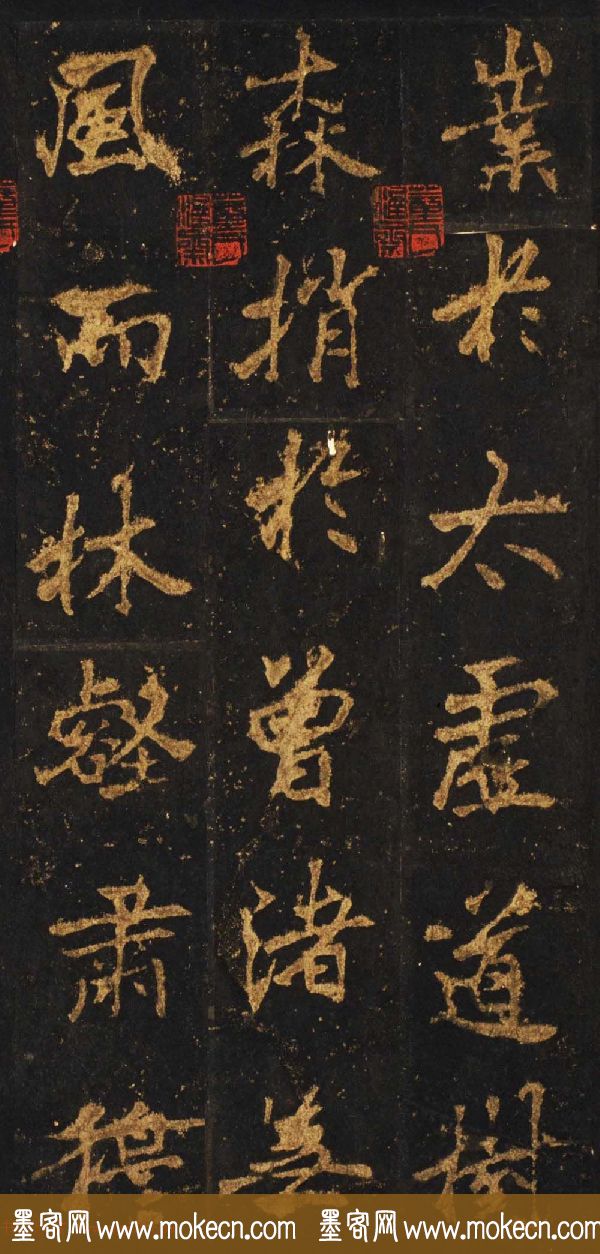 業於太虛道樹
森捎於曾渚
風而林壑肅
墨客网 www.mokecn.com 墨客网 www.mokecn.com